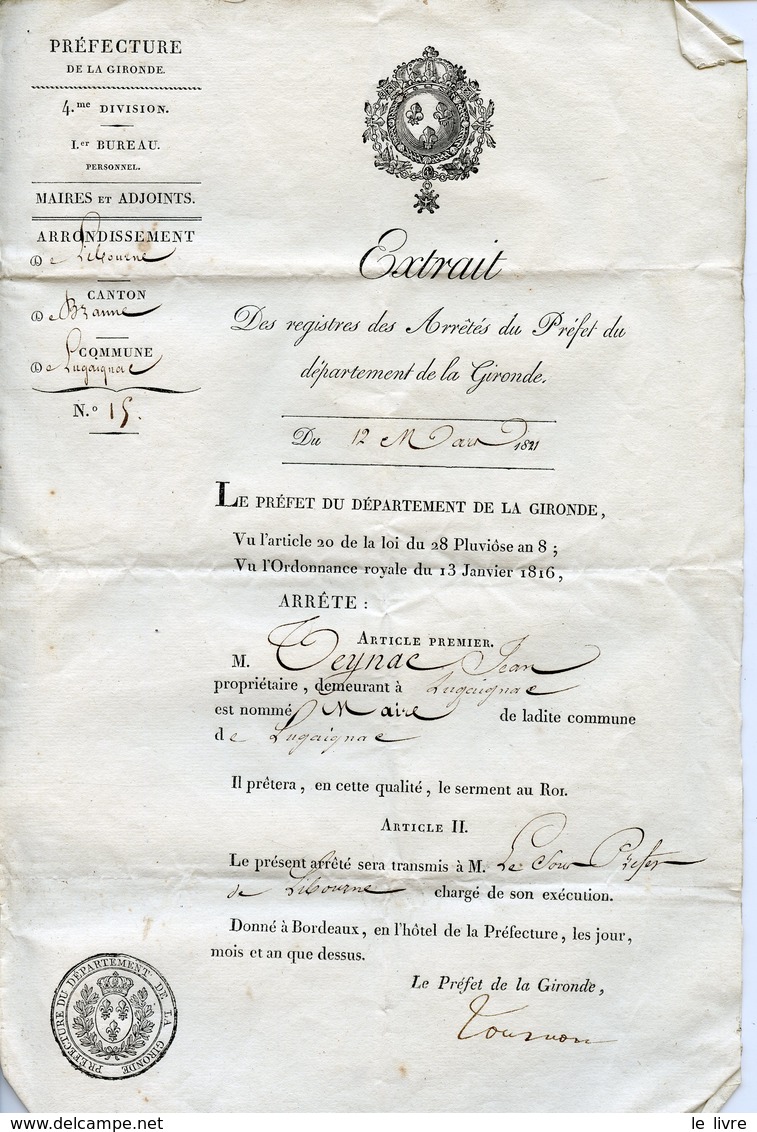 PRÉFECTURE
DE LA GIRONDE.
4.me DIVISION.
I.er BUREAU.
PERSONNEL.
MAIRES ET ADJOINTS.
ARRONDISSEMENT
de Libourne
CANTON
de Branne
COMMUNE
de Lugaignac
N.o 15.
Extrait
Des registres des Arrêtés du Préfet du
département de la Gironde.
Du 12 Mars 1821
LE PRÉFET DU DÉPARTEMENT DE LA GIRONDE,
Vu l'article 20 de la loi du 28 Pluviôse an 8 ;
Vu l'Ordonnance royale du 13 Janvier 1816,
ARRÊTE :
ARTICLE PREMIER.
M. Teynac Jean
propriétaire, demeurant à Lugaignac
est nommé Maire de ladite commune
de Lugaignac
Il prêtera, en cette qualité, le serment au ROI.
ARTICLE II.
Le présent arrêté sera transmis à M. Le Sous Préfet
de Libourne chargé de son exécution.
Donné à Bordeaux, en l'hôtel de la Préfecture, les jour,
mois et an que dessus.
Le Préfet de la Gironde,
Tournon
PRÉFECTURE DU DÉPARTEMENT DE LA GIRONDE
le livre